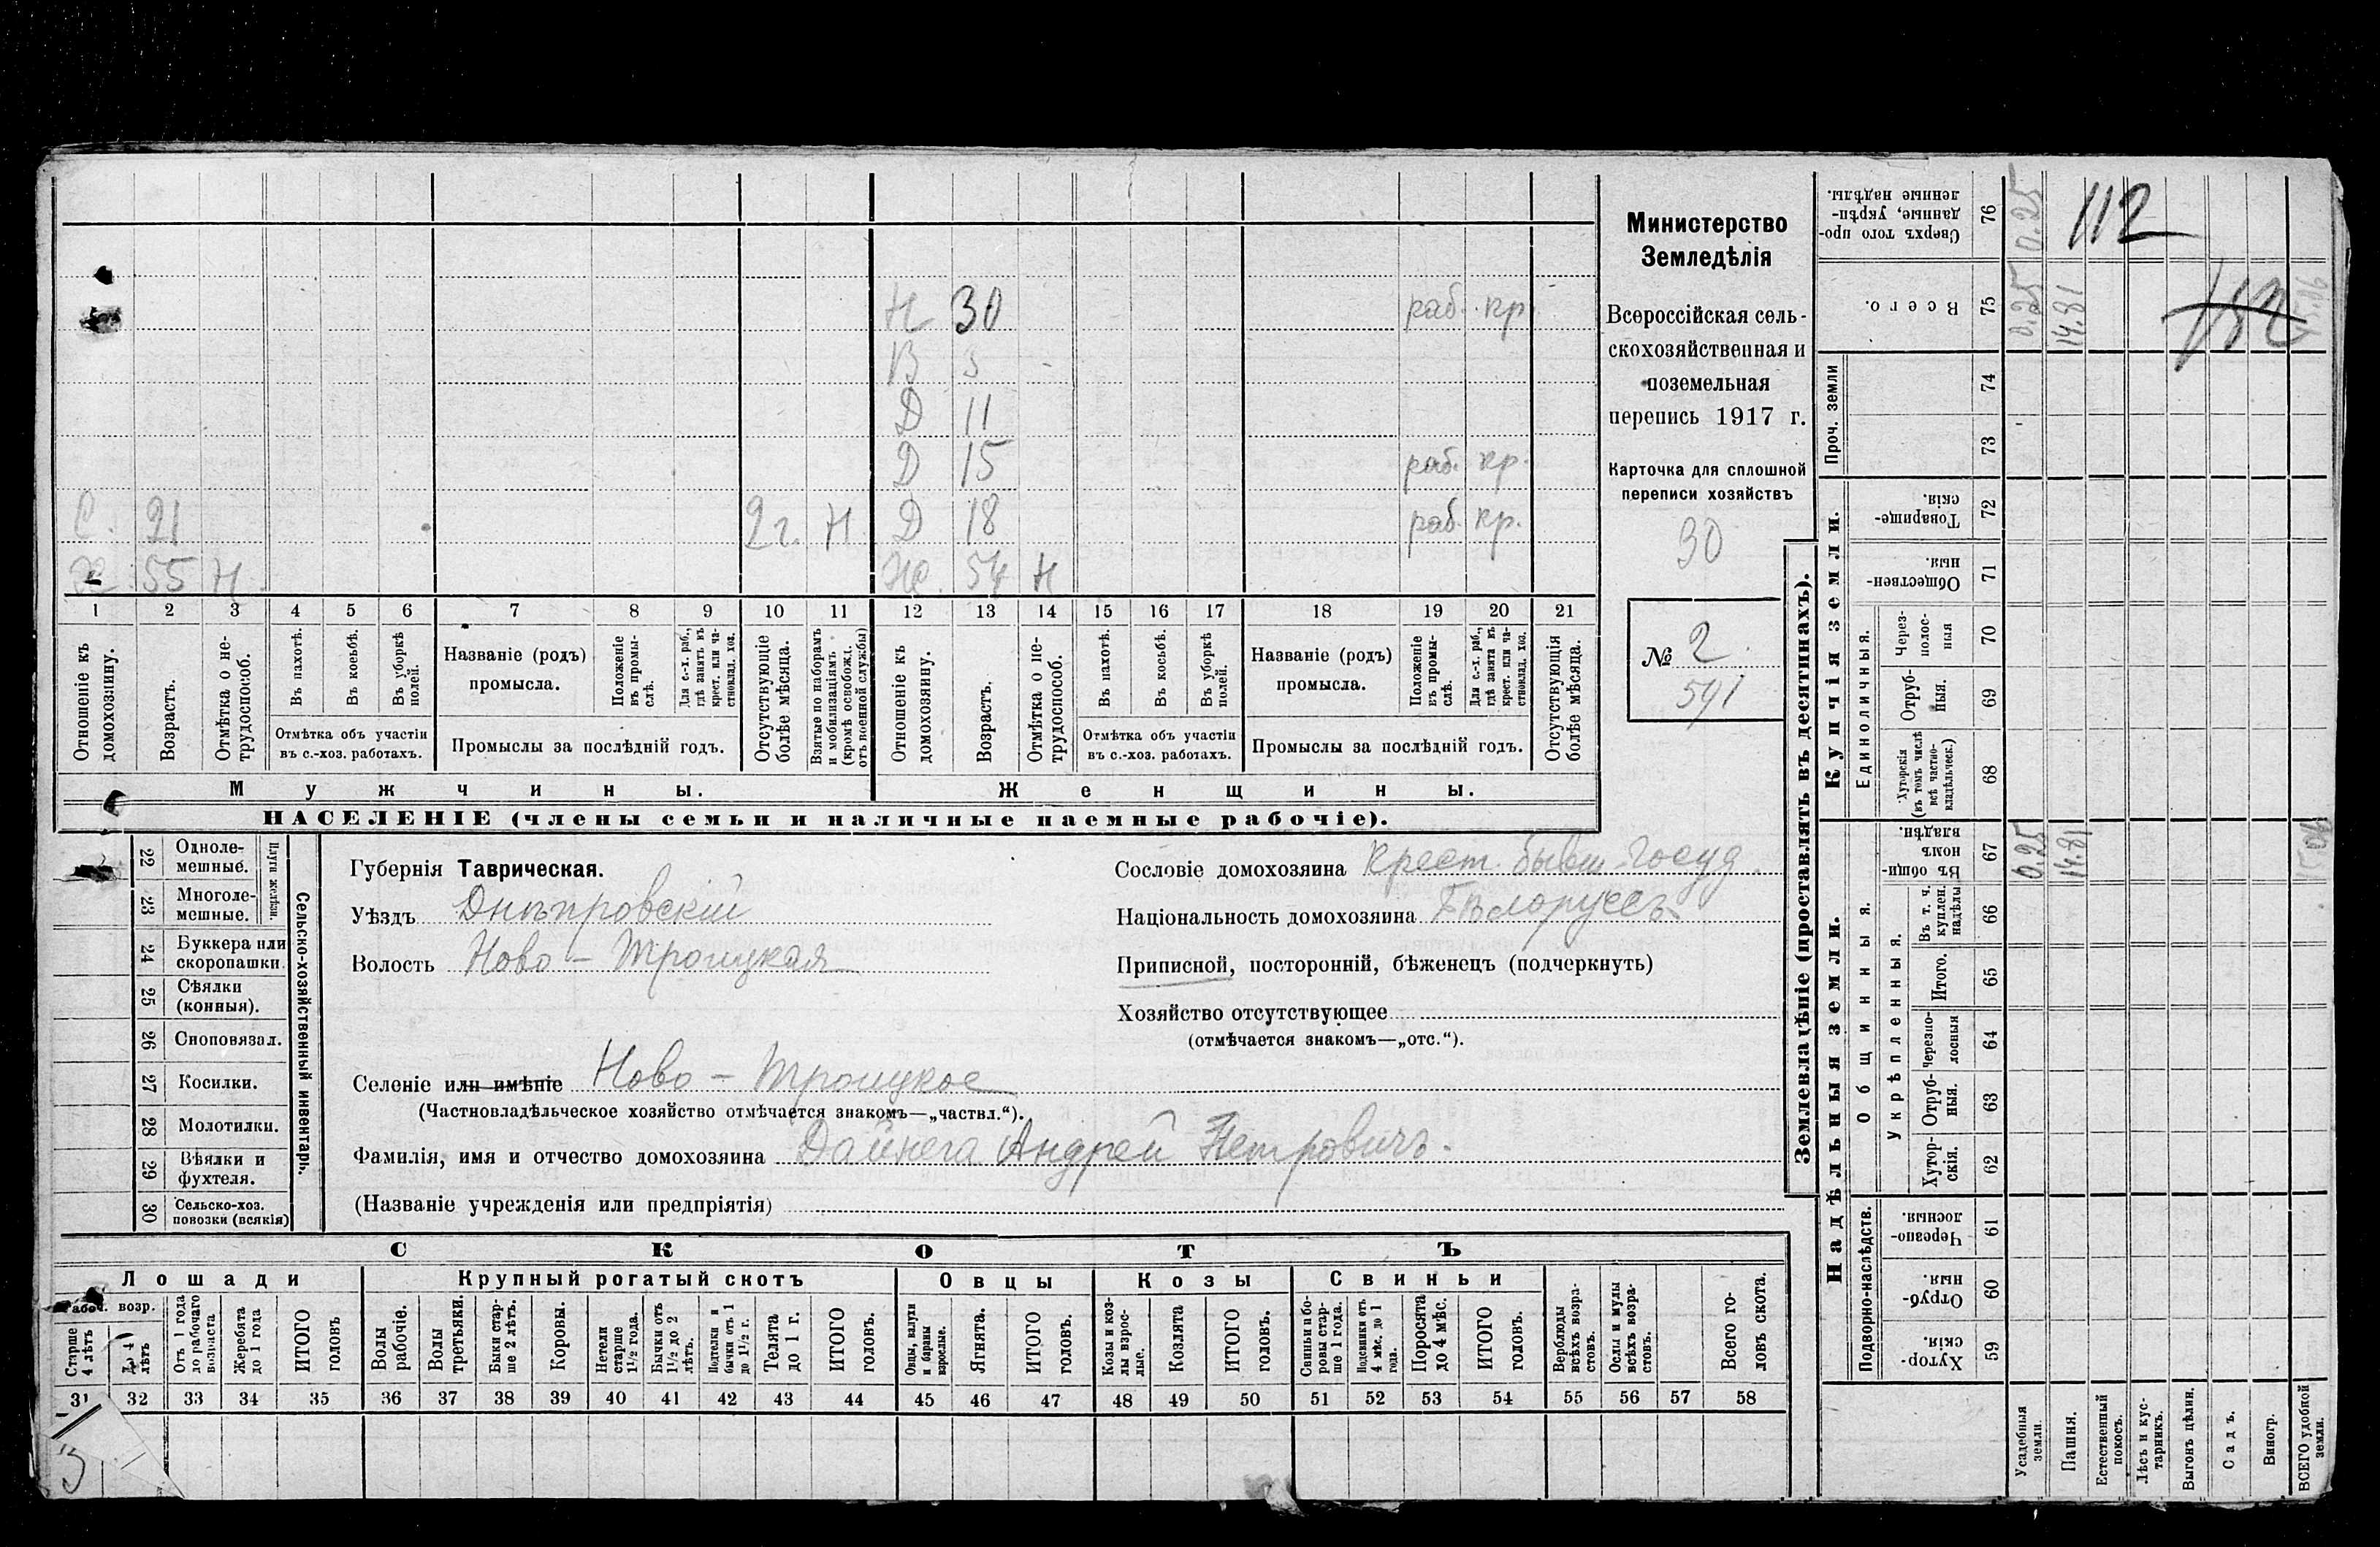 Н 30 раб. кр.
В 3 -
Д 11
Д 15 раб. кр.
С. 21 2 г. Н. Д 18 раб. кр.
Х 55 Н. Ж. 54 Н
1 2 3 4 5 6 7 8 9 10 11 12 13 14 15 16 17 18 19 20 21
Отношеніе къ домохозяину.
Возрастъ.
Отмѣтка о не-трудоспособ.
Въ пахотѣ.
Въ косьбѣ.
Въ уборкѣ полей.
Отмѣтка объ участіи
въ с.-хоз. работахъ.
Названіе (родъ)
промысла.
Положеніе въ промы-слѣ.
Для с.-х. раб., гдѣ занятъ въ крест. или ча-стновлад. хоз.
Промыслы за послѣдній годъ.
Отсутствующіе болѣе мѣсяца.
Взятые по наборамъ и мобилизаціямъ (кромѣ освобожд. отъ военной службы)
Отношеніе къ домохозяину.
Возрастъ.
Отмѣтка о не-трудоспособ.
Въ пахотѣ.
Въ косьбѣ.
Въ уборкѣ полей.
Отмѣтка объ участіи
въ с.-хоз. работахъ.
Названіе (родъ)
промысла.
Положеніе въ промы-слѣ.
Для с.-х. раб., гдѣ занята въ крест. или ча-стновлад. хоз.
Промыслы за послѣдній годъ.
Отсутствующія болѣе мѣсяца.
Мужчины.
Женщины.
НАСЕЛЕНІЕ (члены семьи и наличные наемные рабочіе).
Министерство
Земледѣлія
Всероссійская сель-
скохозяйственная и
поземельная
перепись 1917 г.
Карточка для сплошной
переписи хозяйствъ
30
№ 2.
591
22 Одноле-
мешные.
23 Многоле-
мешные.
Плуги желѣзн
24 Буккера или
скоропашки.
25 Сѣялки
(конныя).
26 Сноповязал.
27 Косилки.
28 Молотилки.
29 Вѣялки и
фухтеля.
30 Сельско-хоз.
повозки (всякія)
Сельско-хозяйственный инвентарь.
Губернія Таврическая.
Уѣздъ Днѣпровскій
Волость Ново-Троицкая
Селеніе или имѣніе Ново-Троицкое
(Частновладѣльческое хозяйство отмѣчается знакомъ—„частвл.“).
Фамилія, имя и отчество домохозяина Дайнега Андрей Петровичъ.
(Названіе учрежденія или предпріятія)
Сословіе домохозяина Крест. бывш. госуд.
Національность домохозяина Бѣлоруссъ
Приписной, посторонній, бѣженецъ (подчеркнуть)
Хозяйство отсутствующее
(отмѣчается знакомъ—„отс.“).
СКОТЪ
Лошади
Крупный рогатый скотъ
Овцы
Козы
Свиньи
Рабоч. возр.
Старше 4 лѣтъ
До 4 лѣтъ
Отъ 1 года до рабочаго возраста
Жеребята до 1 года
ИТОГО головъ
Волы рабочіе.
Волы третьяки.
Быки стар-ше 2 лѣтъ.
Коровы.
Нетели старше 1½ года.
Бычки отъ 1½ до 2 лѣтъ.
Подтелки и бычки отъ 1 до 1½ г.
Телята до 1 г.
ИТОГО головъ.
Овцы, валухи и бараны взрослые.
Ягнята.
ИТОГО головъ.
Козы и коз-лы взрос-лые.
Козлята
ИТОГО головъ.
Свиньи и бо-ровы стар-ше 1 года.
Подсвинки отъ 4 мѣс. до 1 года.
Поросята до 4 мѣс.
ИТОГО головъ.
Верблюды всѣхъ возра-стовъ.
Ослы и мулы всѣхъ возра-стовъ.
Всего го-ловъ скота.
31 32 33 34 35 36 37 38 39 40 41 42 43 44 45 46 47 48 49 50 51 52 53 54 55 56 57 58
3
Землевладѣніе (проставлять въ десятинахъ).
Надѣльныя земли.
Купчія земли.
Проч. земли
Подворно-наслѣдств.
Общинныя.
Укрѣпленныя.
Единоличныя.
Сверхъ того про-данные, укрѣп-ленные надѣлы. 76 0.25
112
Всего. 75 0.25 14.81 15.06
74
73
Товарище-скія. 72
Обществен-ныя. 71
Через-полос-ныя 70
Отруб-ныя. 69
Хуторскія (въ томъ числѣ всѣ частно-владѣльческ.) 68
Въ общи-номъ владѣн. 67 0.25 14.81 15.06
Въ т. ч. куплен. надѣлы 66
Итого. 65
Черезпо-лосныя 64
Отруб-ныя. 63
Хутор-скія. 62
Черезпо-лосныя. 61
Отруб-ныя. 60
Хутор-скія. 59
Усадебныя земли.
Пашня.
Естественный покосъ.
Лѣсъ и кус-тарникъ.
Выгонъ цѣлин.
Садъ.
Виногр.
ВСЕГО удобной земли.